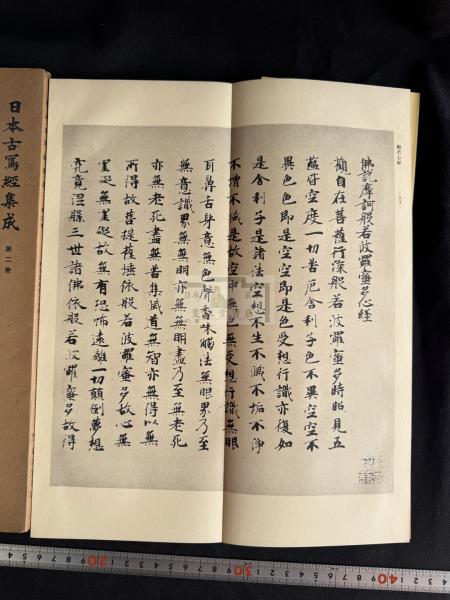 般若心經
佛說摩訶般若波羅蜜多心經
觀自在菩薩行深般若波羅蜜多時照見五
蘊皆空度一切苦厄舍利子色不異空空不
異色色即是空空即是色受想行識亦復如
是舍利子是諸法空想不生不滅不垢不淨
不增不減是故空中無色無受想行識無眼
耳鼻舌身意無色聲香味觸法無眼界乃至
無意識界無無明亦無無明盡乃至無老死
亦無老死盡無苦集滅道無智亦無得以無
所得故菩提薩埵依般若波羅蜜多故心無
罣礙無罣礙故無有恐怖遠離一切顛倒夢想
究竟涅槃三世諸佛依般若波羅蜜多故得
日本古寫經集成
第二卷
20 30 40